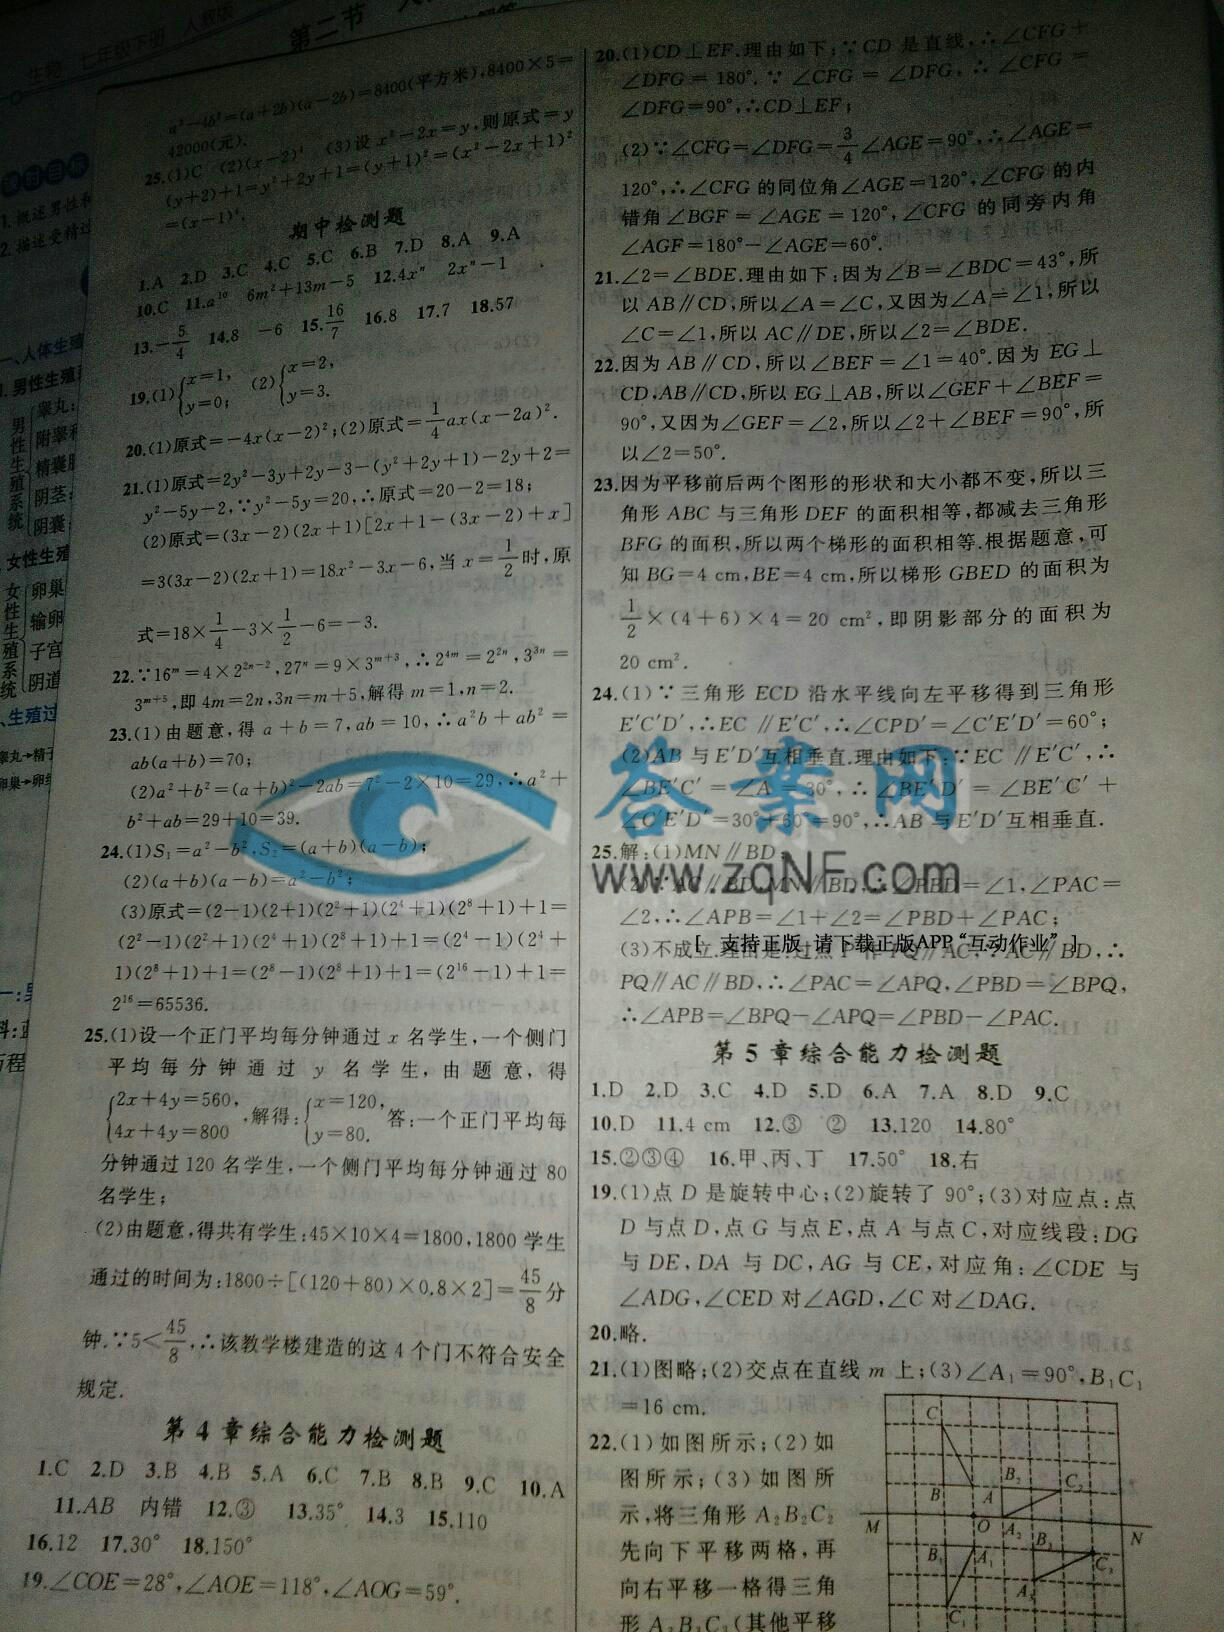 生物 七年级下册 人教版
第二节
课标目标
1.概述男性和
2.描述受精过
一、人体生殖
1.男性生殖系
男性生殖系统
睾丸:
附睾和
精囊腺
阴茎:
阴囊:
女性生殖
女性生殖系统
卵巢
输卵
子宫
阴道
、生殖过
睾丸→精子
卵巢→卵细
a²-4b²=(a+2b)(a-2b)=8400(平方米),8400×5=
42000(元).
25.(1)C (2)(x-2)⁴ (3)设 x²-2x=y,则原式=y
(y+2)+1=y²+2y+1=(y+1)²=(x²-2x+1)²
=(x-1)⁴.
期中检测题
1.A 2.D 3.C 4.C 5.C 6.B 7.D 8.A 9.A
10.C 11.a¹⁰ 6m²+13m-5 12.4xⁿ 2xⁿ-1
13.-5/4 14.8 -6 15.16/7 16.8 17.7 18.57
19.(1){x=1, y=0; (2){x=2, y=3.
20.(1)原式=-4x(x-2)²;(2)原式=1/4ax(x-2a)².
21.(1)原式=2y²-3y+2y-3-(y²+2y+1)-2y+2=
y²-5y-2,∵y²-5y=20,∴原式=20-2=18;
(2)原式=(3x-2)(2x+1)[2x+1-(3x-2)+x]
=3(3x-2)(2x+1)=18x²-3x-6,当 x=1/2时,原
式=18×1/4-3×1/2-6=-3.
22.∵16ᵐ=4×2²ⁿ⁻²,27ⁿ=9×3ᵐ⁺³,∴2⁴ᵐ=2²ⁿ,3³ⁿ=
3ᵐ⁺⁵,即 4m=2n,3n=m+5,解得 m=1,n=2.
23.(1)由题意,得 a+b=7,ab=10,∴a²b+ab²=
ab(a+b)=70;
(2)a²+b²=(a+b)²-2ab=7²-2×10=29,∴a²+
b²+ab=29+10=39.
24.(1)S₁=a²-b²,S₂=(a+b)(a-b);
(2)(a+b)(a-b)=a²-b²;
(3)原式=(2-1)(2+1)(2²+1)(2⁴+1)(2⁸+1)+1=
(2²-1)(2²+1)(2⁴+1)(2⁸+1)+1=(2⁴-1)(2⁴+
1)(2⁸+1)+1=(2⁸-1)(2⁸+1)+1=(2¹⁶-1)+1=
2¹⁶=65536.
25.(1)设一个正门平均每分钟通过 x 名学生,一个侧门
平均每分钟通过 y 名学生,由题意,得
{2x+4y=560, 4x+4y=800 ,解得:{x=120, y=80. 答:一个正门平均每
分钟通过 120 名学生,一个侧门平均每分钟通过 80
名学生;
(2)由题意,得共有学生:45×10×4=1800,1800 学生
通过的时间为:1800÷[(120+80)×0.8×2]=45/8分
钟.∵5<45/8,∴该教学楼建造的这 4 个门不符合安全
规定.
第 4 章综合能力检测题
1.C 2.D 3.B 4.B 5.A 6.C 7.B 8.B 9.C 10.A
11.AB 内错 12.③ 13.35° 14.3 15.110
16.12 17.30° 18.150°
19.∠COE=28°,∠AOE=118°,∠AOG=59°.
20.(1)CD⊥EF.理由如下:∵CD 是直线,∴∠CFG+
∠DFG=180°.∵∠CFG=∠DFG,∴∠CFG=
∠DFG=90°,∴CD⊥EF;
(2)∵∠CFG=∠DFG=3/4∠AGE=90°,∴∠AGE=
120°,∴∠CFG 的同位角∠AGE=120°,∠CFG 的内
错角∠BGF=∠AGE=120°,∠CFG 的同旁内角
∠AGF=180°-∠AGE=60°.
21.∠2=∠BDE.理由如下:因为∠B=∠BDC=43°,所
以 AB∥CD,所以∠A=∠C,又因为∠A=∠1,所以
∠C=∠1,所以 AC∥DE,所以∠2=∠BDE.
22.因为 AB∥CD,所以∠BEF=∠1=40°.因为 EG⊥
CD,AB∥CD,所以 EG⊥AB,所以∠GEF+∠BEF=
90°,又因为∠GEF=∠2,所以∠2+∠BEF=90°,所
以∠2=50°.
23.因为平移前后两个图形的形状和大小都不变,所以三
角形 ABC 与三角形 DEF 的面积相等,都减去三角形
BFG 的面积,所以两个梯形的面积相等.根据题意,可
知 BG=4 cm,BE=4 cm,所以梯形 GBED 的面积为
1/2×(4+6)×4=20 cm²,即阴影部分的面积为
20 cm².
24.(1)∵三角形 ECD 沿水平线向左平移得到三角形
E′C′D′,∴EC∥E′C′,∴∠CPD′=∠C′E′D′=60°;
(2)AB 与 E′D′互相垂直.理由如下:∵EC∥E′C′,∴
∠BE′C′=∠A=30°,∴∠BE′D′=∠BE′C′+
∠C′E′D′=30°+60°=90°,∴AB 与 E′D′互相垂直.
25.解:(1)MN∥BD;
(2)∵AC∥BD,MN∥BD,∴∠PBD=∠1,∠PAC=
∠2,∴∠APB=∠1+∠2=∠PBD+∠PAC;
(3)不成立.理由是:过点 P 作 PQ∥AC,∵AC∥BD,∴
PQ∥AC∥BD,∴∠PAC=∠APQ,∠PBD=∠BPQ,
∴∠APB=∠BPQ-∠APQ=∠PBD-∠PAC.
答案网
www.zqNF.com
[ 支持正版 请下载正版APP“互动作业” ]
第 5 章综合能力检测题
1.D 2.D 3.C 4.D 5.D 6.A 7.A 8.D 9.C
10.D 11.4 cm 12.③ ② 13.120 14.80°
15.②③④ 16.甲、丙、丁 17.50° 18.右
19.(1)点 D 是旋转中心;(2)旋转了 90°;(3)对应点:点
D 与点 D,点 G 与点 E,点 A 与点 C,对应线段:DG
与 DE,DA 与 DC,AG 与 CE,对应角:∠CDE 与
∠ADG,∠CED 对∠AGD,∠C 对∠DAG.
20.略.
21.(1)图略;(2)交点在直线 m 上;(3)∠A₁=90°,B₁C₁
=16 cm.
22.(1)如图所示;(2)如
图所示;(3)如图所
示,将三角形 A₂B₂C₂
先向下平移两格,再
向右平移一格得三角
形 A₃B₃C₃(其他平移
C
B A B₂ C₂
M O A₂ N
B₁ A₁ B₃ C₃
A₃
C₁